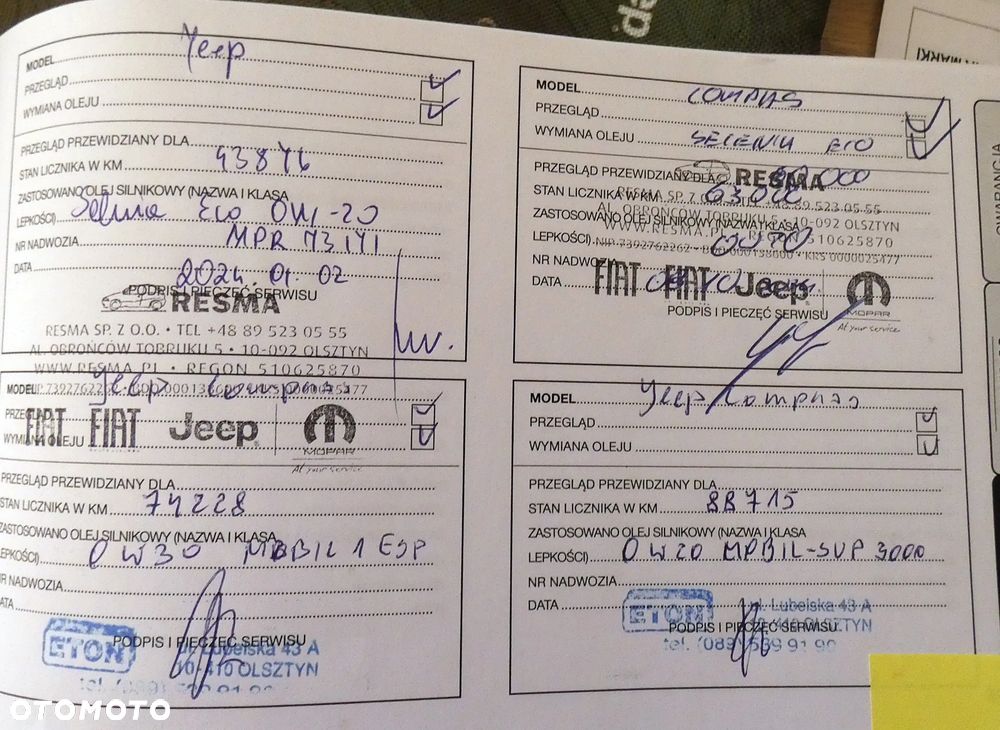 MODEL Jeep
PRZEGLĄD
WYMIANA OLEJU
PRZEGLĄD PRZEWIDZIANY DLA
STAN LICZNIKA W KM 43876
ZASTOSOWANO OLEJ SILNIKOWY (NAZWA I KLASA
LEPKOŚCI) Eco 0W-20
NR NADWOZIA MPR
DATA 2024.01.02
PODPIS I PIECZĘĆ SERWISU
RESMA
RESMA SP. Z O.O. • TEL +48 89 523 05 55
AL. OBROŃCÓW TOBRUKU 5 • 10-092 OLSZTYN
WWW.RESMA.PL • REGON 510625870
FIAT FIAT Jeep MOPAR
At your service
MODEL COMPAS
PRZEGLĄD
WYMIANA OLEJU SELENIA ECO
PRZEGLĄD PRZEWIDZIANY DLA
RESMA
STAN LICZNIKA W KM 63000
RESMA SP. Z O.O. • TEL +48 89 523 05 55
AL. OBROŃCÓW TOBRUKU 5 • 10-092 OLSZTYN
ZASTOSOWANO OLEJ SILNIKOWY (NAZWA I KLASA
WWW.RESMA.PL • REGON 510625870
LEPKOŚCI)
NIP 7392762262 • KRS 0000025477
NR NADWOZIA
FIAT FIAT Jeep MOPAR
DATA
At your service
PODPIS I PIECZĘĆ SERWISU
MODEL Jeep Compass
PRZEGLĄD
WYMIANA OLEJU
PRZEGLĄD PRZEWIDZIANY DLA
STAN LICZNIKA W KM 74228
ZASTOSOWANO OLEJ SILNIKOWY (NAZWA I KLASA
LEPKOŚCI) 0W30 MOBIL 1 ESP
NR NADWOZIA
DATA
PODPIS I PIECZĘĆ SERWISU
ETON
ul. Lubelska 43 A
10-410 OLSZTYN
MODEL Jeep Compas
PRZEGLĄD
WYMIANA OLEJU
PRZEGLĄD PRZEWIDZIANY DLA
STAN LICZNIKA W KM 88715
ZASTOSOWANO OLEJ SILNIKOWY (NAZWA I KLASA
LEPKOŚCI) 0W20 MOBIL-SUP 3000
NR NADWOZIA
DATA
ETON
ul. Lubelska 43 A
10-410 OLSZTYN
PODPIS I PIECZĘĆ SERWISU
tel. (089) 539 91 90
OTOMOTO